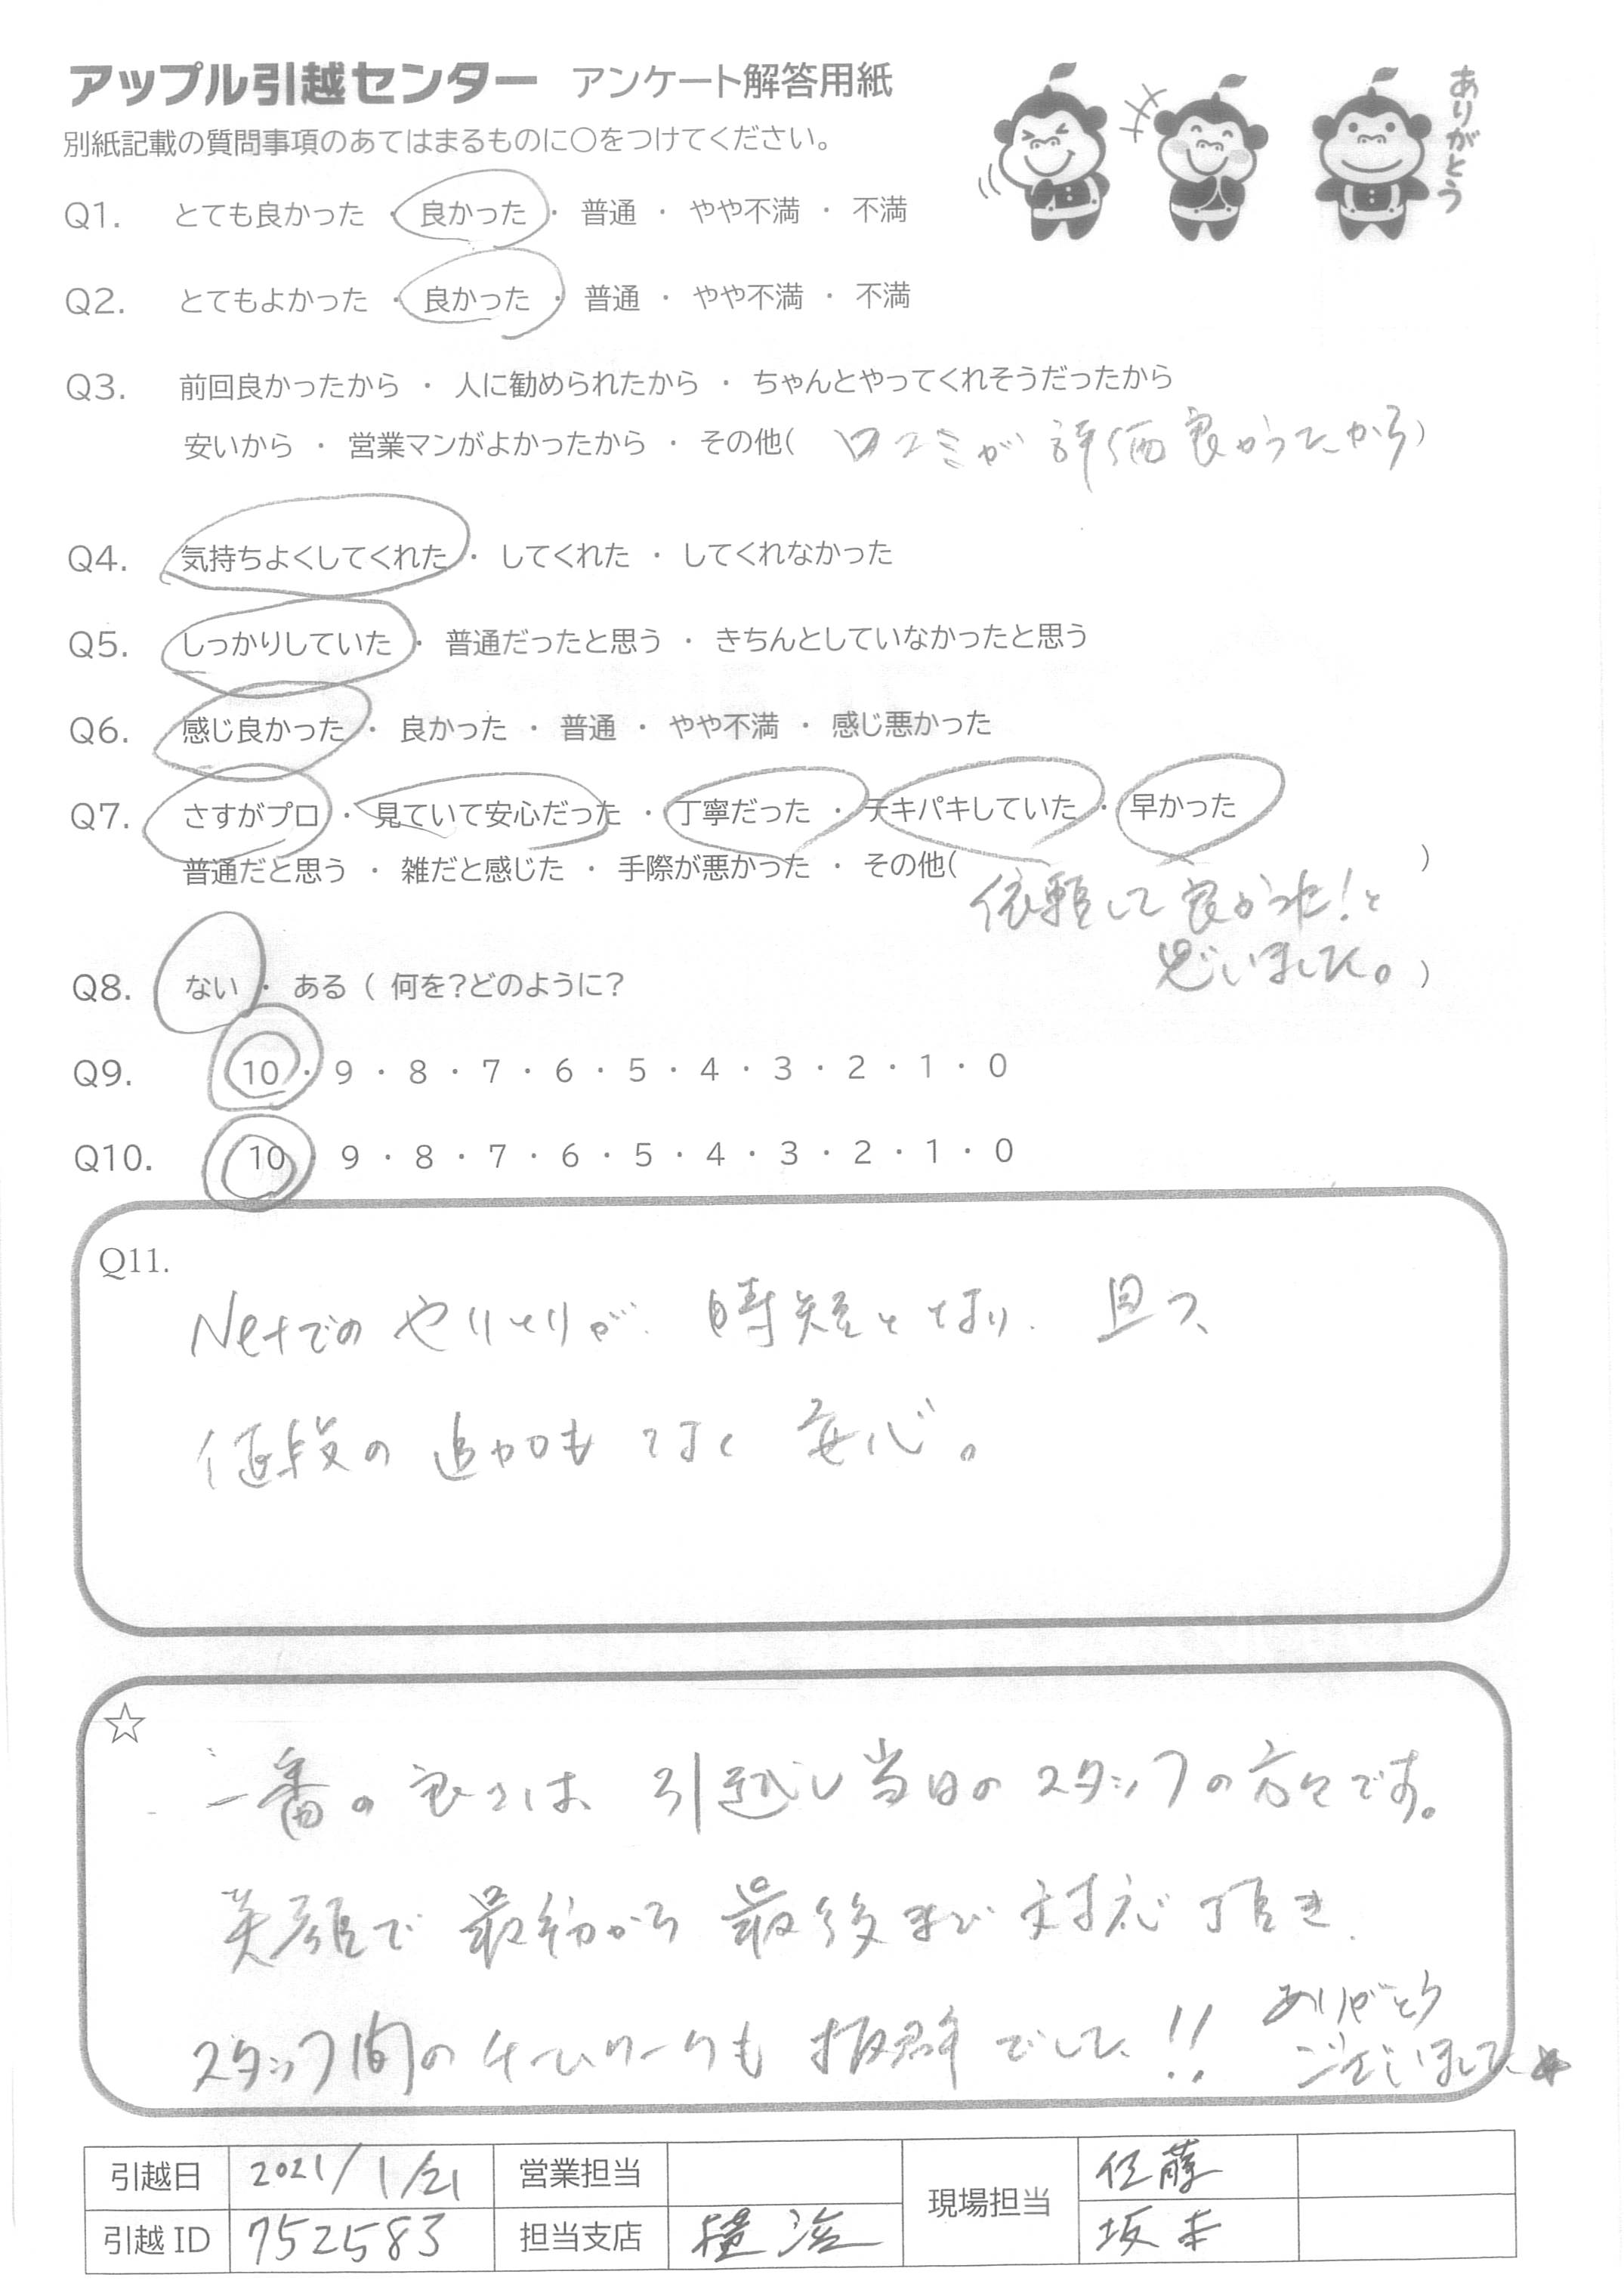 アップル引越センター アンケート解答用紙
ありがとう
別紙記載の質問事項のあてはまるものに○をつけてください。
Q1. とても良かった ・ 良かった ・ 普通 ・ やや不満 ・ 不満
Q2. とてもよかった ・ 良かった ・ 普通 ・ やや不満 ・ 不満
Q3. 前回良かったから ・ 人に勧められたから ・ ちゃんとやってくれそうだったから
安いから ・ 営業マンがよかったから ・ その他( 口コミが評価良かったから)
Q4. 気持ちよくしてくれた ・ してくれた ・ してくれなかった
Q5. しっかりしていた ・ 普通だったと思う ・ きちんとしていなかったと思う
Q6. 感じ良かった ・ 良かった ・ 普通 ・ やや不満 ・ 感じ悪かった
Q7. さすがプロ ・ 見ていて安心だった ・ 丁寧だった ・ テキパキしていた ・ 早かった
普通だと思う ・ 雑だと感じた ・ 手際が悪かった ・ その他( )
依頼して良かった!と
思いました。
Q8. ない ・ ある ( 何を?どのように? )
Q9. 10 ・ 9 ・ 8 ・ 7 ・ 6 ・ 5 ・ 4 ・ 3 ・ 2 ・ 1 ・ 0
Q10. 10 ・ 9 ・ 8 ・ 7 ・ 6 ・ 5 ・ 4 ・ 3 ・ 2 ・ 1 ・ 0
Q11.
Netでのやりとりが、時短となり、且つ、
値段の追加もなく安心。
☆
一番の良さは、引越し当日のスタッフの方々です。
笑顔で最初から最後まで対応頂き、
スタッフ間のチームワークも抜群でした!!
ありがとう
ございました★
引越日 2021/1/21 営業担当 現場担当 佐藤
引越ID 752583 担当支店 横浜 坂本